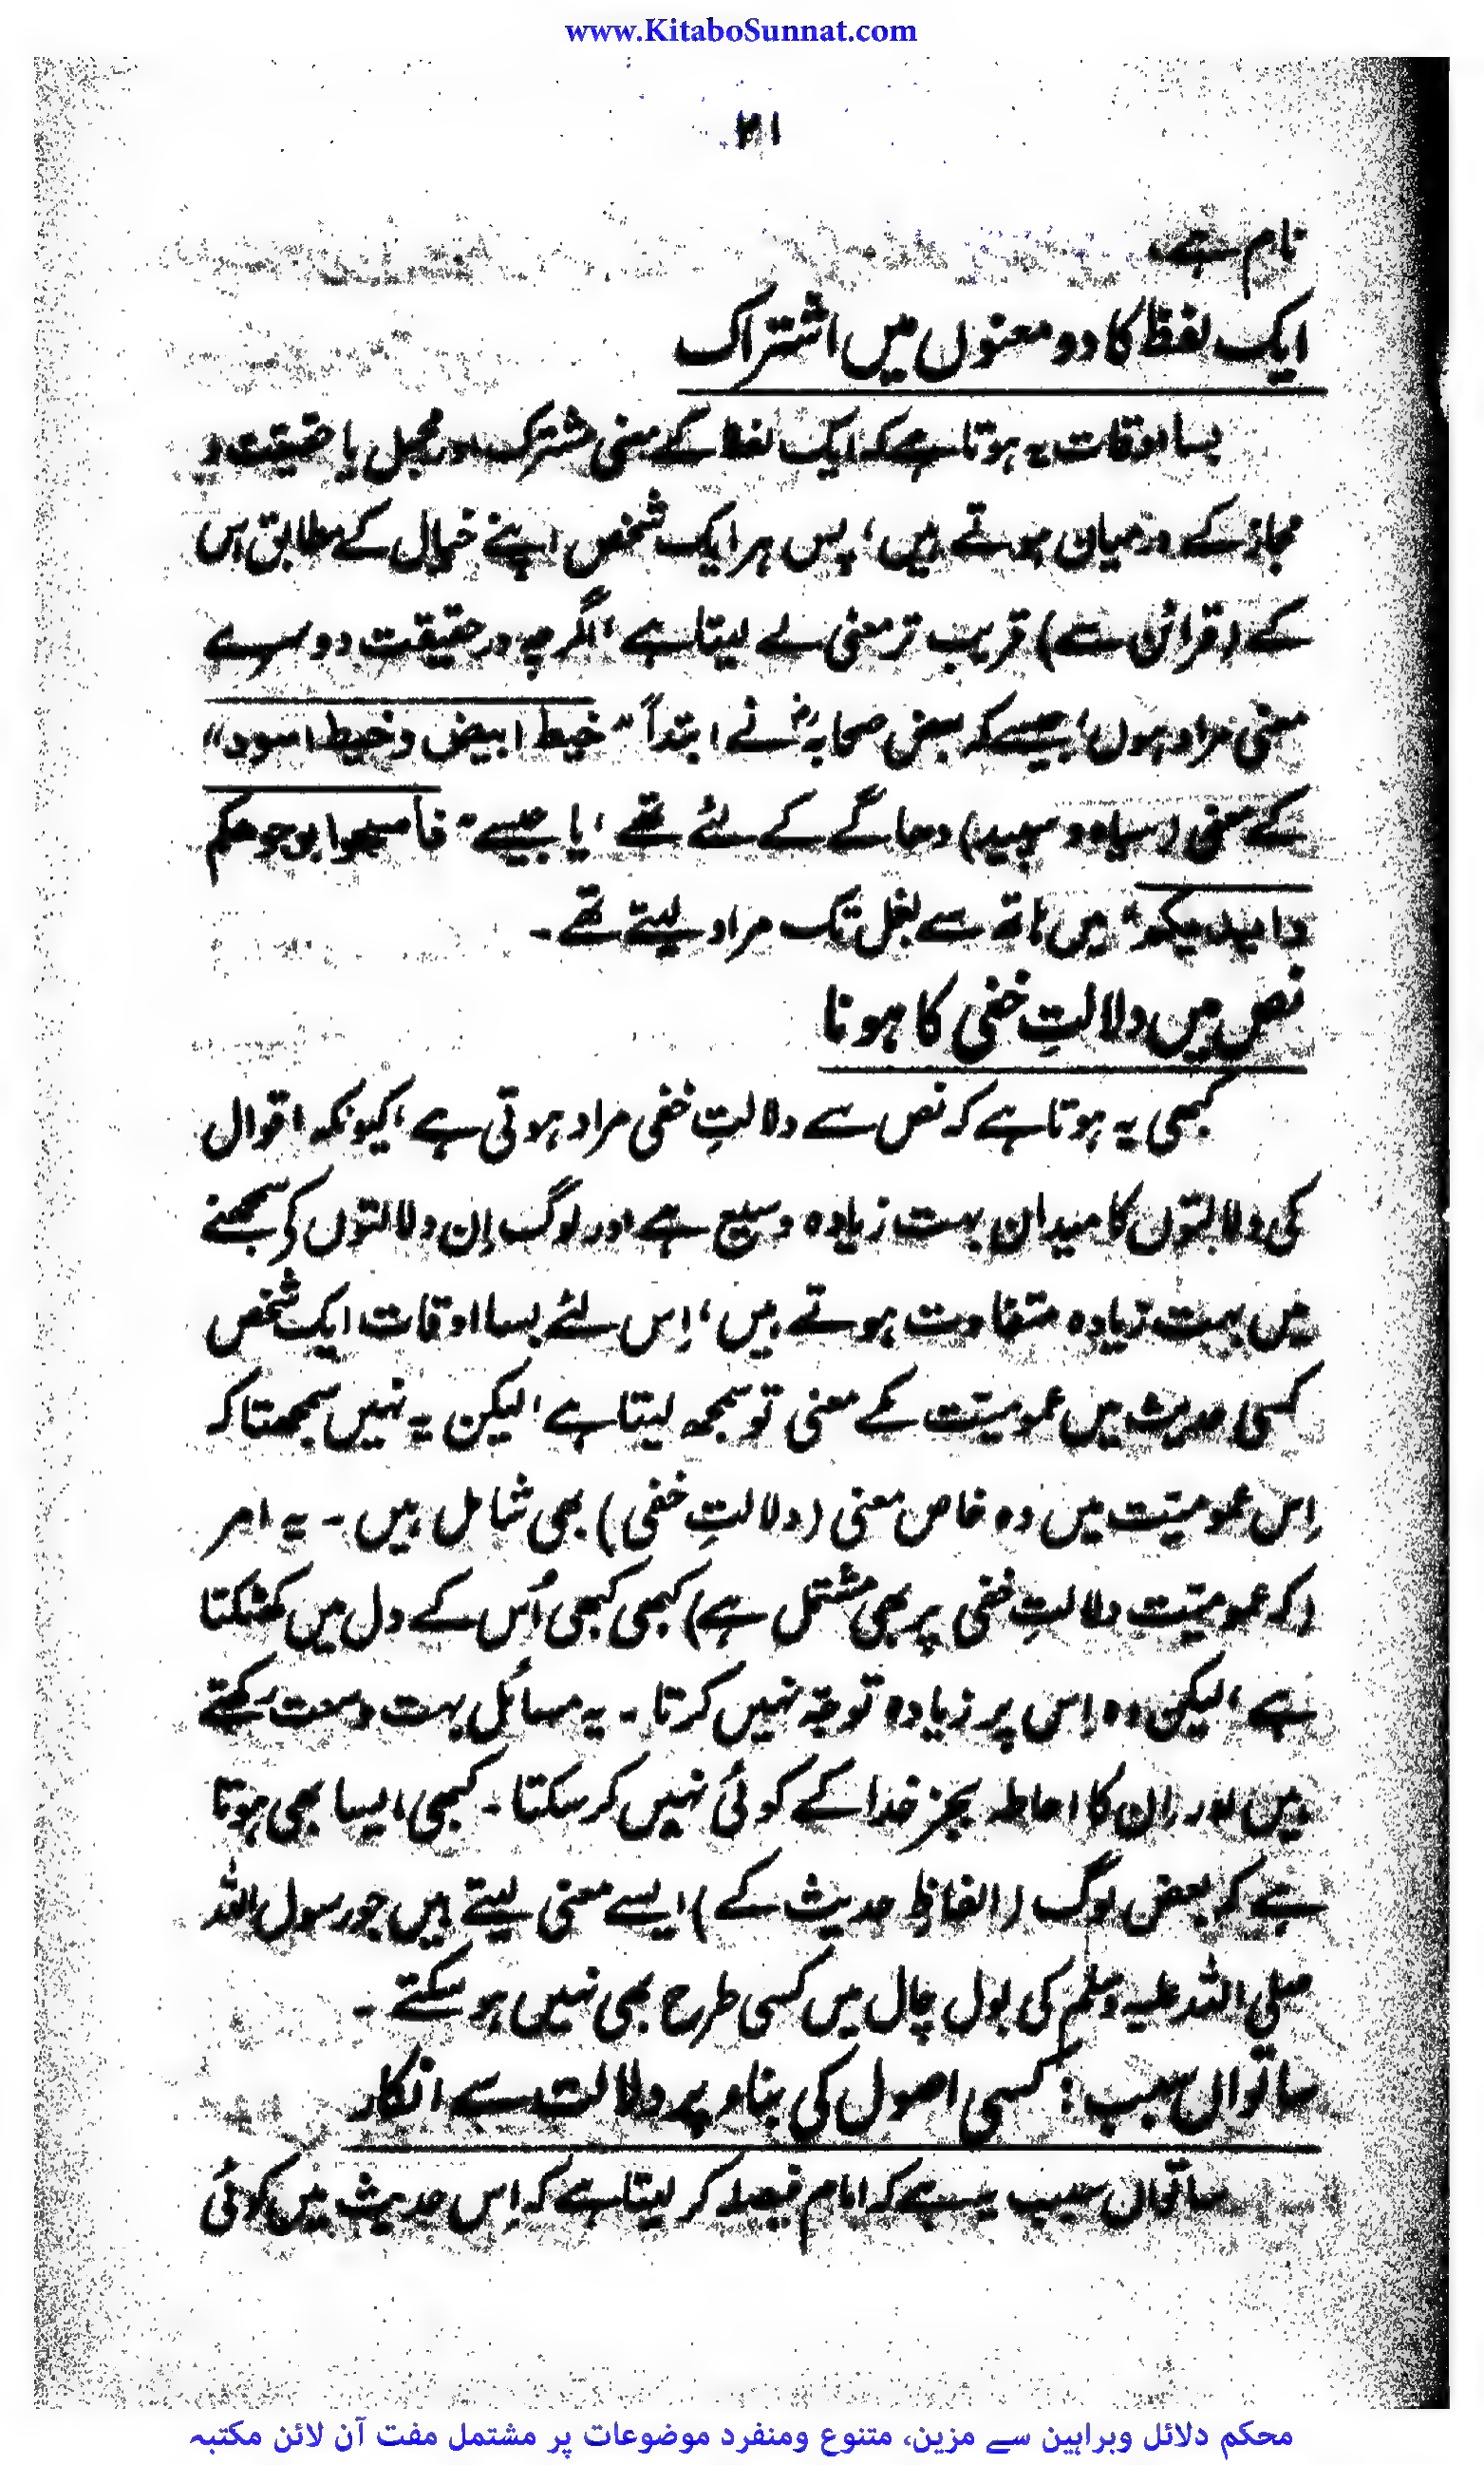 www.KitaboSunnat.com
۲۱
نام ہے۔
ایک لفظ کا دو معنوں میں اشتراک
بسا اوقات یہ ہوتا ہے کہ ایک لفظ کے معنی مشترک اور مجمل یا حقیقت و
مجاز کے درمیان ہوتے ہیں، پس ہر ایک شخص اپنے خیال کے مطابق اس
کے (قرائن سے) قریب تر معنی لے لیتا ہے، اگرچہ درحقیقت دوسرے
معنی مراد ہوں، جیسے کہ بعض صحابہؓ نے ابتداً "خیط ابیض و خیط اسود"
کے معنی (سیاہ و سپید) دھاگے کے لئے تھے، یا جیسے "فامسحوا بوجوھکم
وایدیکم" میں ہاتھ سے بغل تک مراد لیتے تھے۔
نص میں دلالتِ خفی کا ہونا
کبھی یہ ہوتا ہے کہ نص سے دلالتِ خفی مراد ہوتی ہے، کیونکہ اقوال
کی دلالتوں کا میدان بہت زیادہ وسیع ہے اور لوگ اِن دلالتوں کو سمجھنے
میں بہت زیادہ متفاوت ہوتے ہیں، اِس لئے بسا اوقات ایک شخص
کسی حدیث میں عمومیّت کے معنی تو سمجھ لیتا ہے، لیکن یہ نہیں سمجھتا کہ
اِس عمومیّت میں وہ خاص معنی (دلالتِ خفی) بھی شامل ہیں۔ یہ امر
(کہ عمومیّت دلالتِ خفی پر بھی مشتمل ہے) کبھی کبھی اُس کے دل میں کھٹکتا
ہے، لیکن وہ اِس پر زیادہ توجّہ نہیں کرتا۔ یہ مسائل بہت وسعت رکھتے
ہیں اور اِن کا احاطہ بجز خدا کے کوئی نہیں کر سکتا۔ کبھی ایسا بھی ہوتا
ہے کہ بعض لوگ (الفاظِ حدیث کے) ایسے معنی لیتے ہیں جو رسول اللہ
صلی اللہ علیہ وسلم کی بول چال میں کسی طرح بھی نہیں ہو سکتے۔
ساتواں سبب: کسی اصول کی بناء پر دلالت سے انکار
ساتواں سبب یہ ہے کہ امام فیصلہ کر لیتا ہے کہ اِس حدیث میں کوئی
محکم دلائل وبراہین سے مزین، متنوع ومنفرد موضوعات پر مشتمل مفت آن لائن مکتبہ